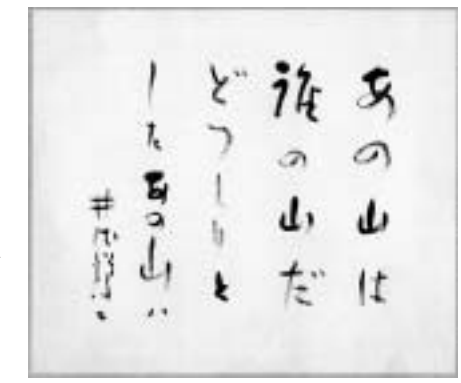 あの山は
誰の山だ
どつしりと
したあの山は
井伏鱒二